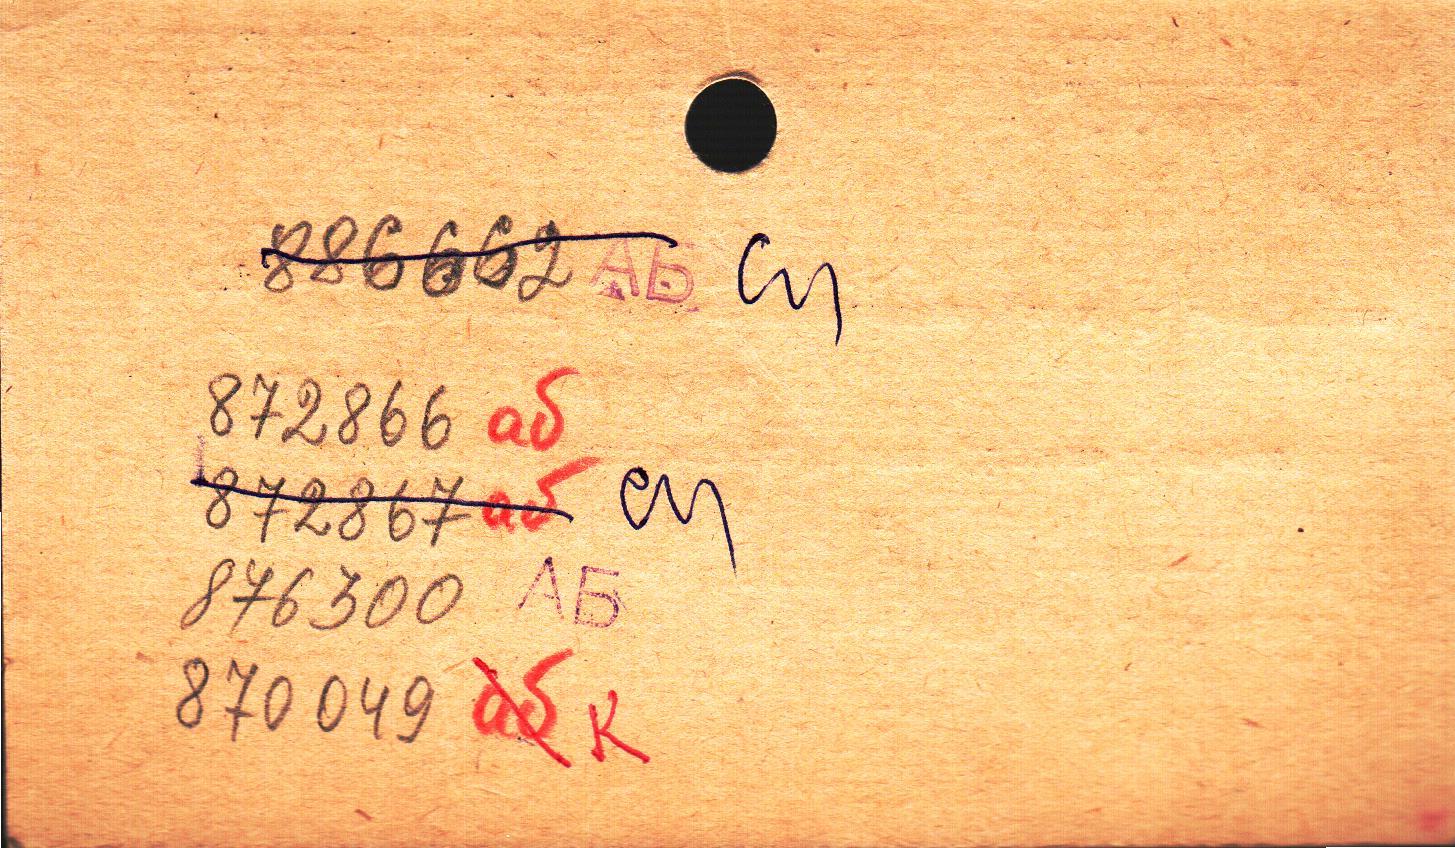 886662 АБ сч
872866 аб
872867 аб сч
876300 АБ
870049 аб К